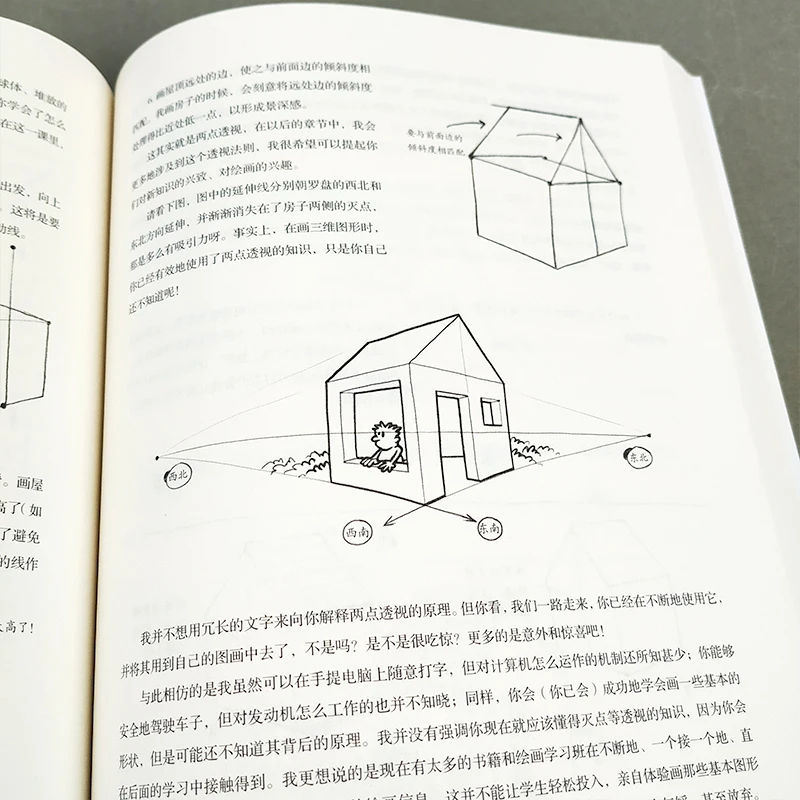 球体、堆放的
你学会了怎么
在这一课里,
出发,向上
。这将是要
助线。
。画屋
高了(如
了避免
的线作
太高了!
6. 画屋顶远处的边,使之与前面边的倾斜度相
匹配。我画房子的时候,会刻意将远处边的倾斜度
处理得比近处低一点,以形成景深感。
这其实就是两点透视,在以后的章节中,我会
更多地涉及到这个透视法则,我很希望可以提起你
们对新知识的兴致、对绘画的兴趣。
请看下图,图中的延伸线分别朝罗盘的西北和
东北方向延伸,并渐渐消失在了房子两侧的灭点,
那是多么有吸引力呀。事实上,在画三维图形时,
你已经有效地使用了两点透视的知识,只是你自己
还不知道呢!
要与前面边的
倾斜度相匹配
西北
东北
西南
东南
我并不想用冗长的文字来向你解释两点透视的原理。但你看,我们一路走来,你已经在不断地使用它,
并将其用到自己的图画中去了,不是吗?是不是很吃惊?更多的是意外和惊喜吧!
与此相仿的是我虽然可以在手提电脑上随意打字,但对计算机怎么运作的机制还所知甚少;你能够
安全地驾驶车子,但对发动机怎么工作的也并不知晓;同样,你会(你已会)成功地学会画一些基本的
形状,但是可能还不知道其背后的原理。我并没有强调你现在就应该懂得灭点等透视的知识,因为你会
在后面的学习中接触得到。我更想说的是现在有太多的书籍和绘画学习班在不断地、一个接一个地、直
绘画信息,这并不能让学生轻松投入,亲自体验画那些基本图形
甚至放弃。